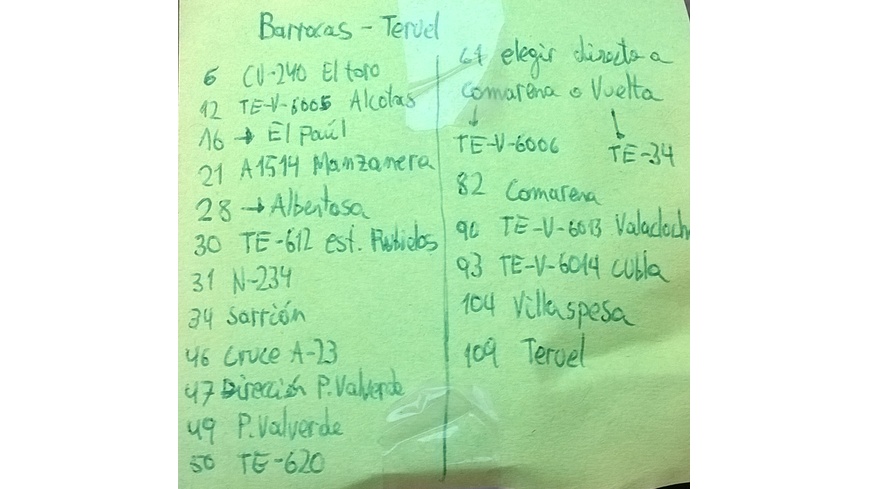 Barracas - Teruel
6 CV-240 El toro
12 TE-V-6005 Alcotas
16 → El Paúl
21 A1514 Manzanera
28 → Albentosa
30 TE-612 est. Rubielos
31 N-234
34 Sarrión
46 Cruce A-23
47 Dirección P.Valverde
49 P.Valverde
50 TE-620
61 elegir directo a
Comarena o Vuelta
TE-V-6006 TE-34
82 Comarena
90 TE-V-6013 Valacloch
93 TE-V-6014 Cubla
104 Villaspesa
109 Teruel